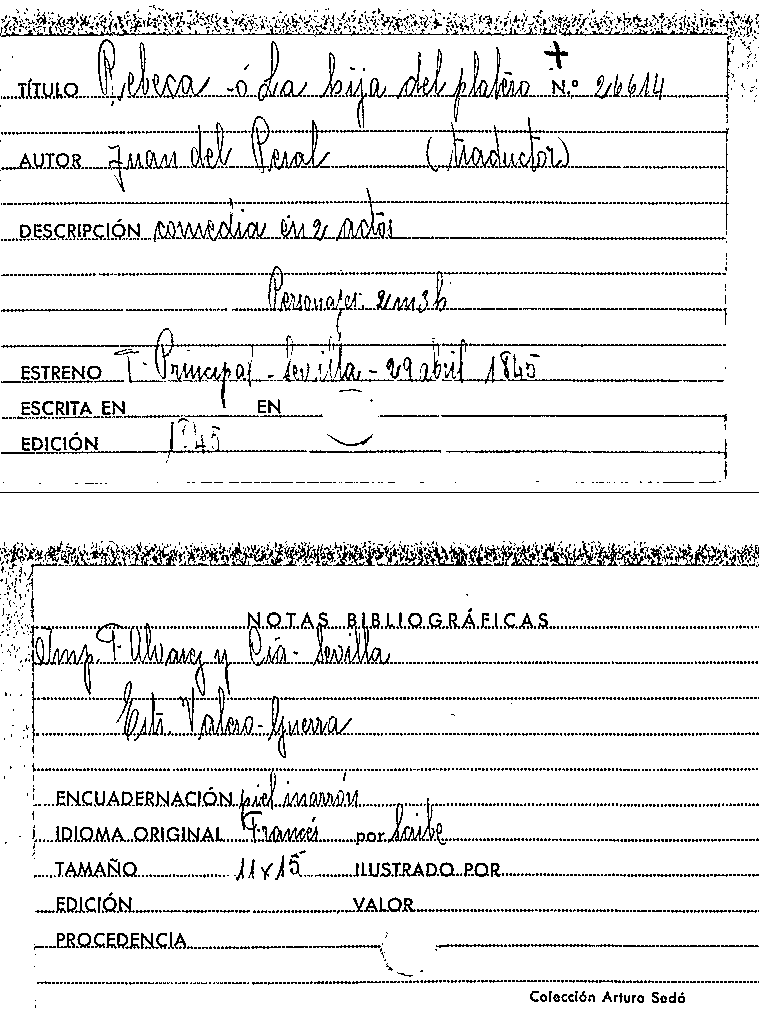 TÍTULO Rebeca ó La hija del platero N.º 26614
AUTOR Juan del Peral (traductor)
DESCRIPCIÓN comedia en 2 actos
Personajes: 2m3h
ESTRENO T. Principal - Sevilla - 29 abril 1845
ESCRITA EN EN
EDICIÓN 1845
NOTAS BIBLIOGRÁFICAS
Imp. F. Alvarez y Cía - Sevilla
Estr. Valero - Guerra
ENCUADERNACIÓN piel marrón
IDIOMA ORIGINAL Francés por
TAMAÑO 11 x 15 ILUSTRADO POR
EDICIÓN VALOR
PROCEDENCIA
Colección Arturo Sedó